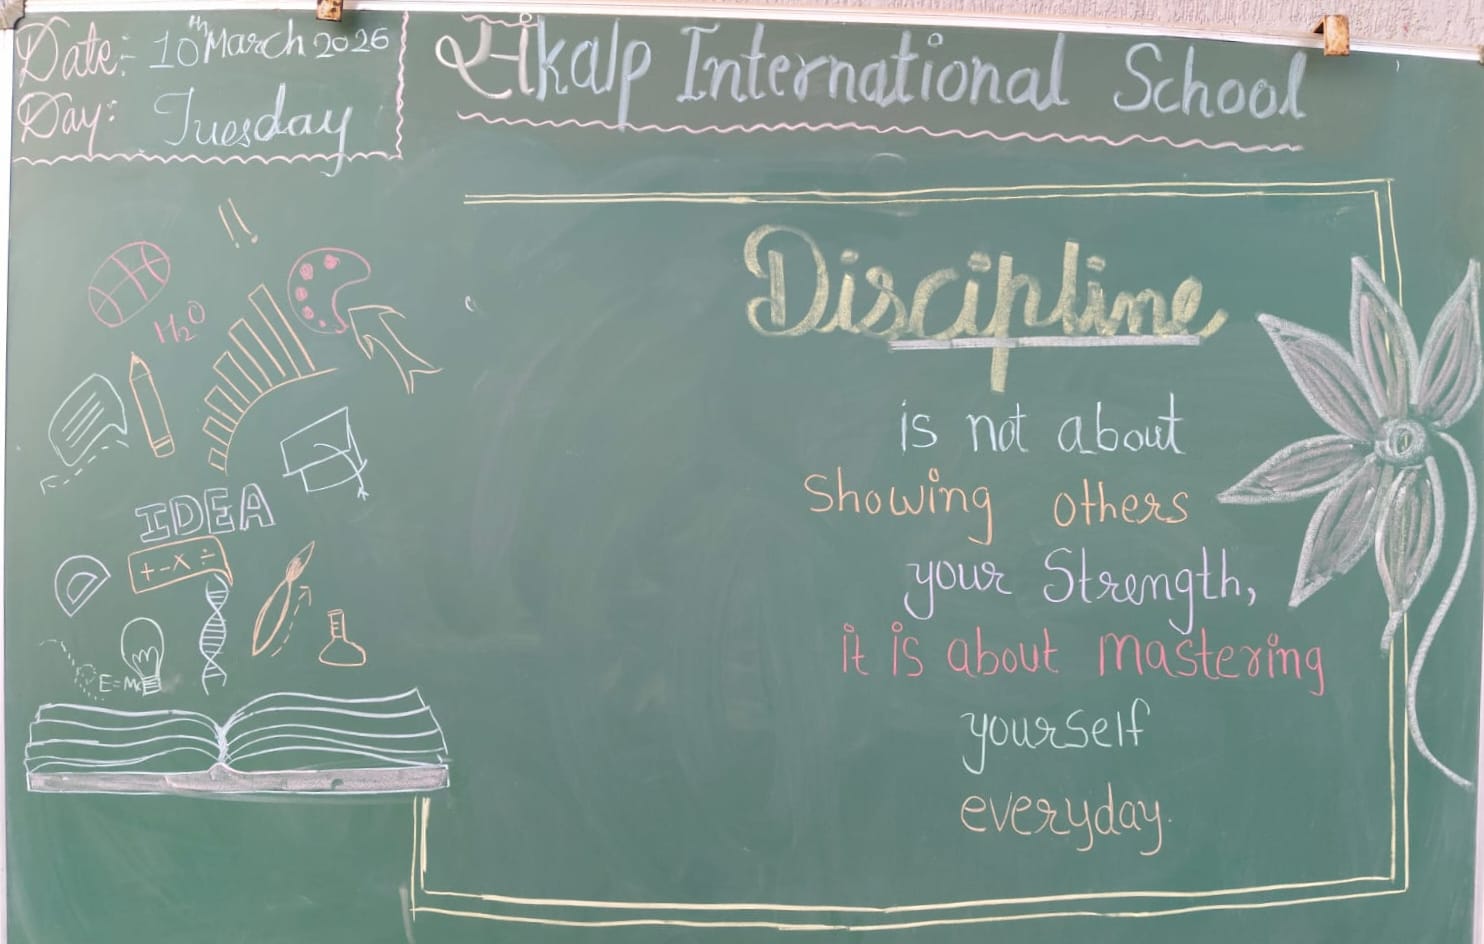 Date:- 10th March 2026
Day: Tuesday
संkalp International School
!!
H₂O
IDEA
+ - × ÷
E=Mc
Discipline
is not about
Showing others
your Strength,
it is about mastering
yourself
everyday.